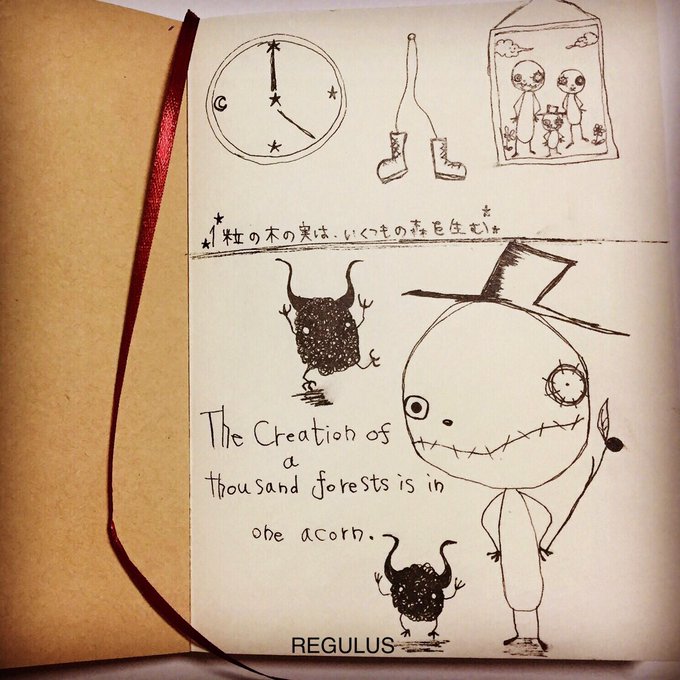 1粒の木の実は、いくつもの森を生む
The Creation of
a
thousand forests is in
one acorn.
REGULUS